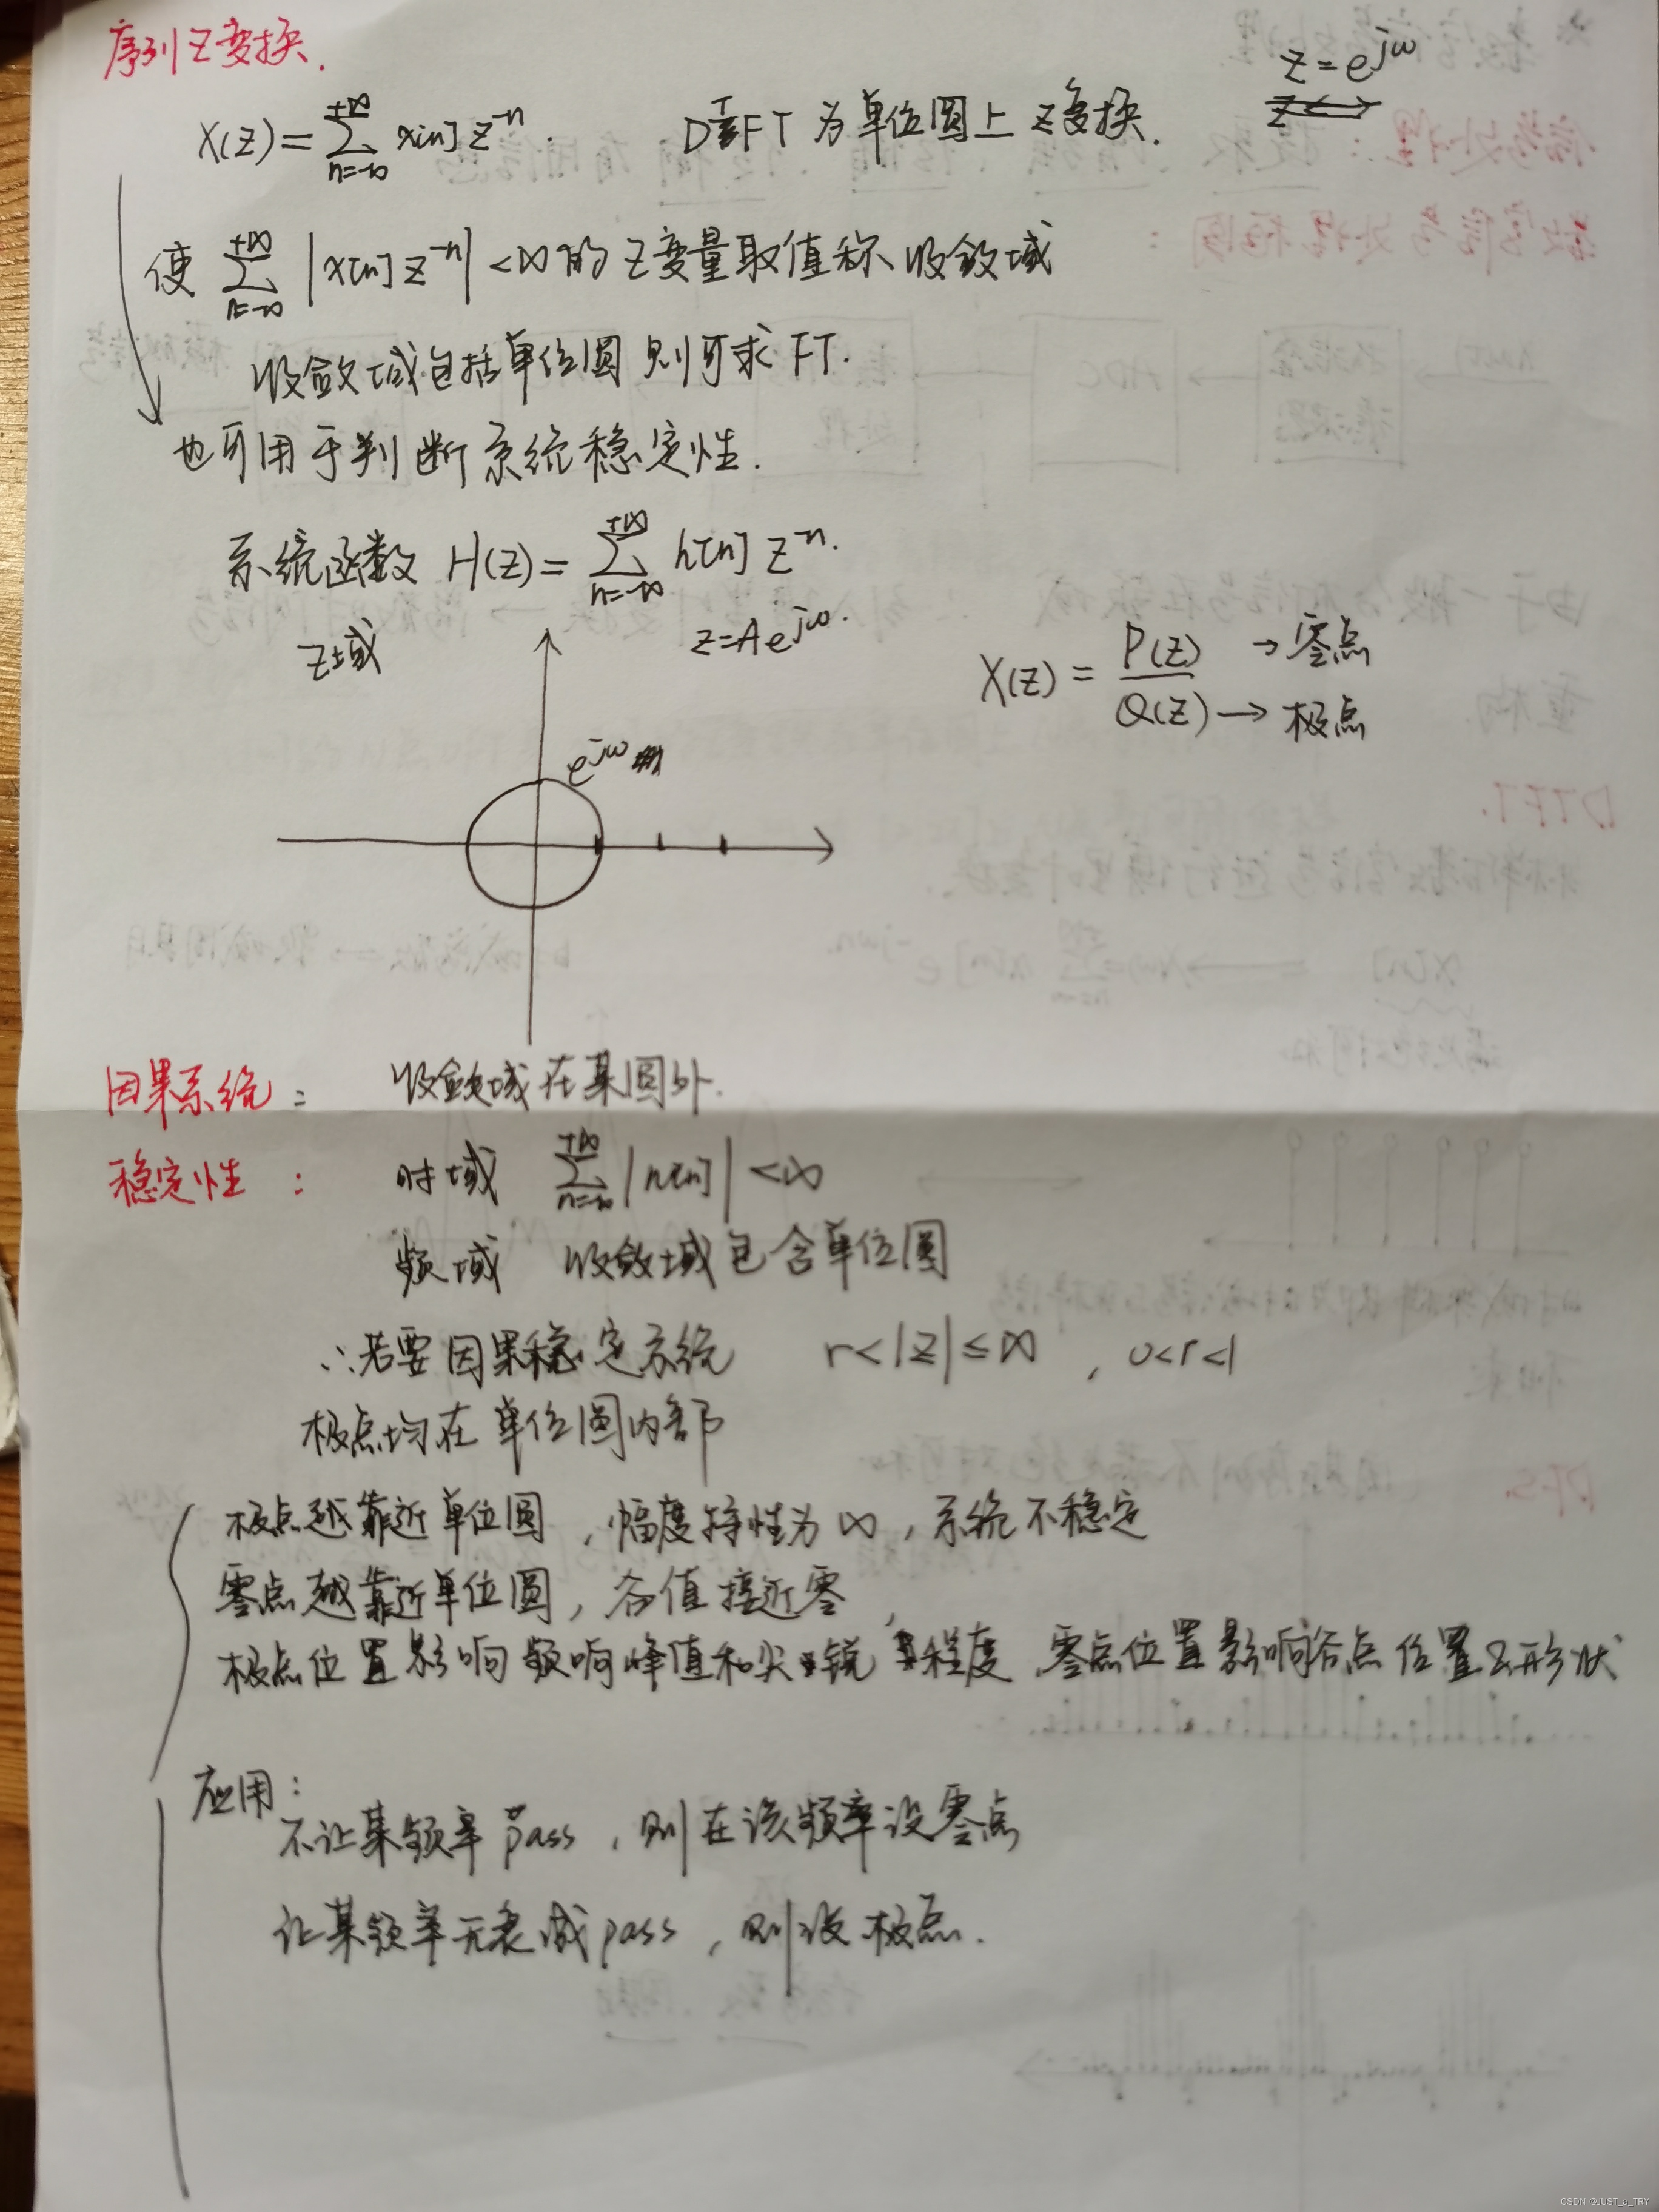 序列Z变换.
X(z)=∑_{n=-∞}^{+∞} x[n] z^{-n}. DTFT 为单位圆上 Z变换. z=e^{jω}
使 ∑_{n=-∞}^{+∞} |x[n] z^{-n}| <∞ 的 Z变量取值称 收敛域
收敛域包括单位圆 则可求 FT.
也可用于判断系统稳定性.
系统函数 H(z)=∑_{n=-∞}^{+∞} h[n] z^{-n}.
Z域 z=Ae^{jω}.
X(z)=P(z)/Q(z) →零点 →极点
e^{jω}
因果系统: 收敛域在某圆外.
稳定性: 时域 ∑_{n=-∞}^{+∞} |h[n]| <∞
频域 收敛域包含单位圆
∴若要因果稳定系统 r<|z|≤∞ , 0<r<1
极点均在单位圆内部
极点越靠近单位圆,幅度特性为∞,系统不稳定
零点越靠近单位圆,谷值接近零,
极点位置影响频响峰值和尖锐程度 零点位置影响谷点位置及形状
应用:
不让某频率pass,则在该频率设零点
让某频率无衰减pass,则设极点.
CSDN @JUST_a_TRY